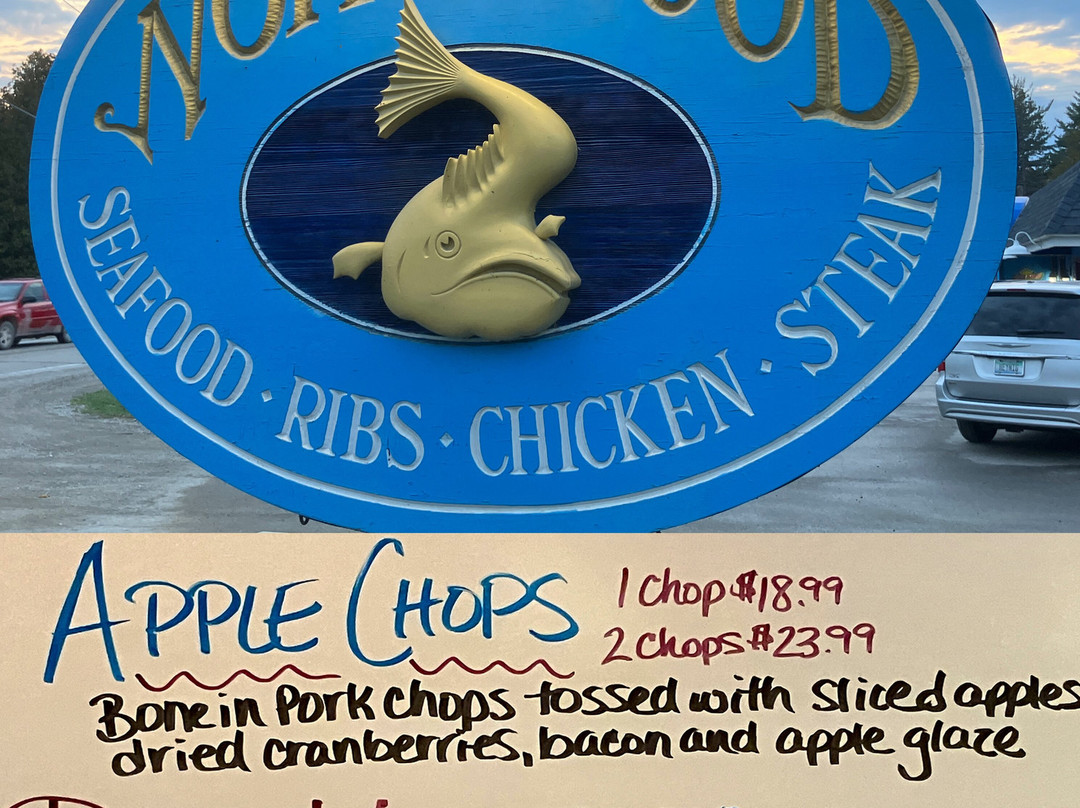 SEAFOOD · RIBS · CHICKEN · STEAK
APPLE CHOPS
1 Chop $18.99
2 Chops $23.99
Bone in Pork Chops tossed with sliced apples
dried cranberries, bacon and apple glaze